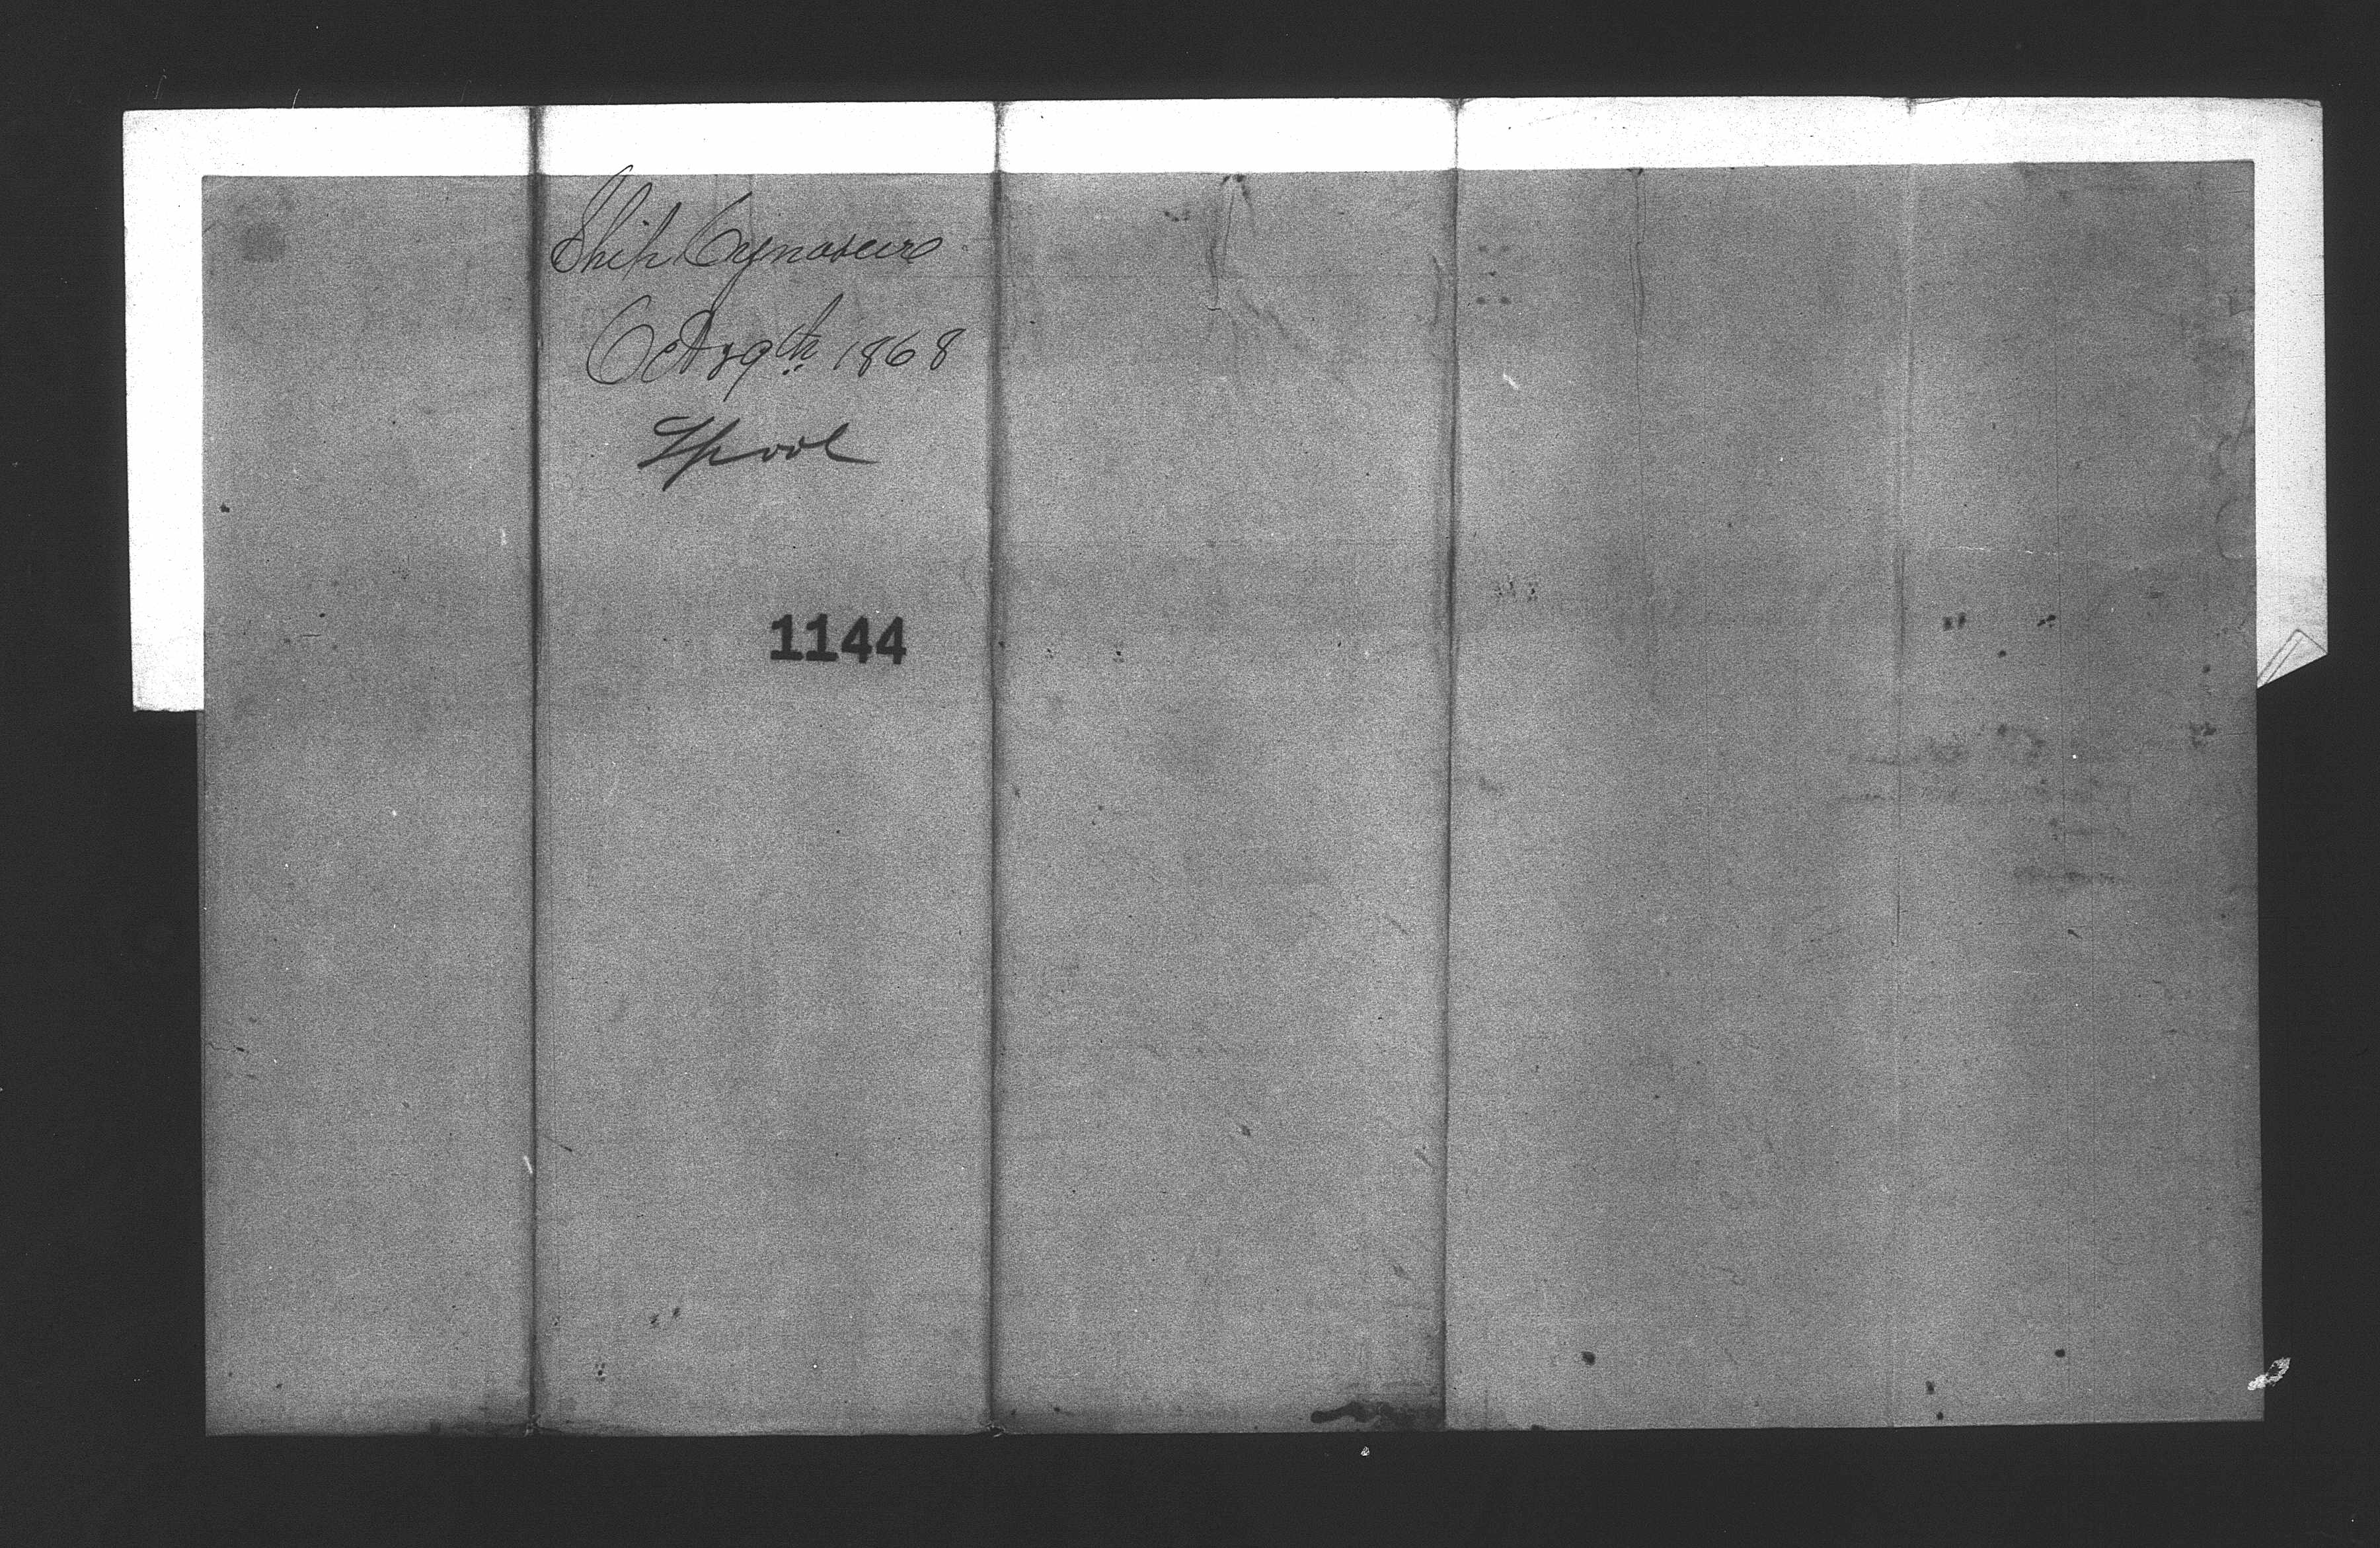 Ship Cynosure
Oct 29th 1868
Lpool
1144